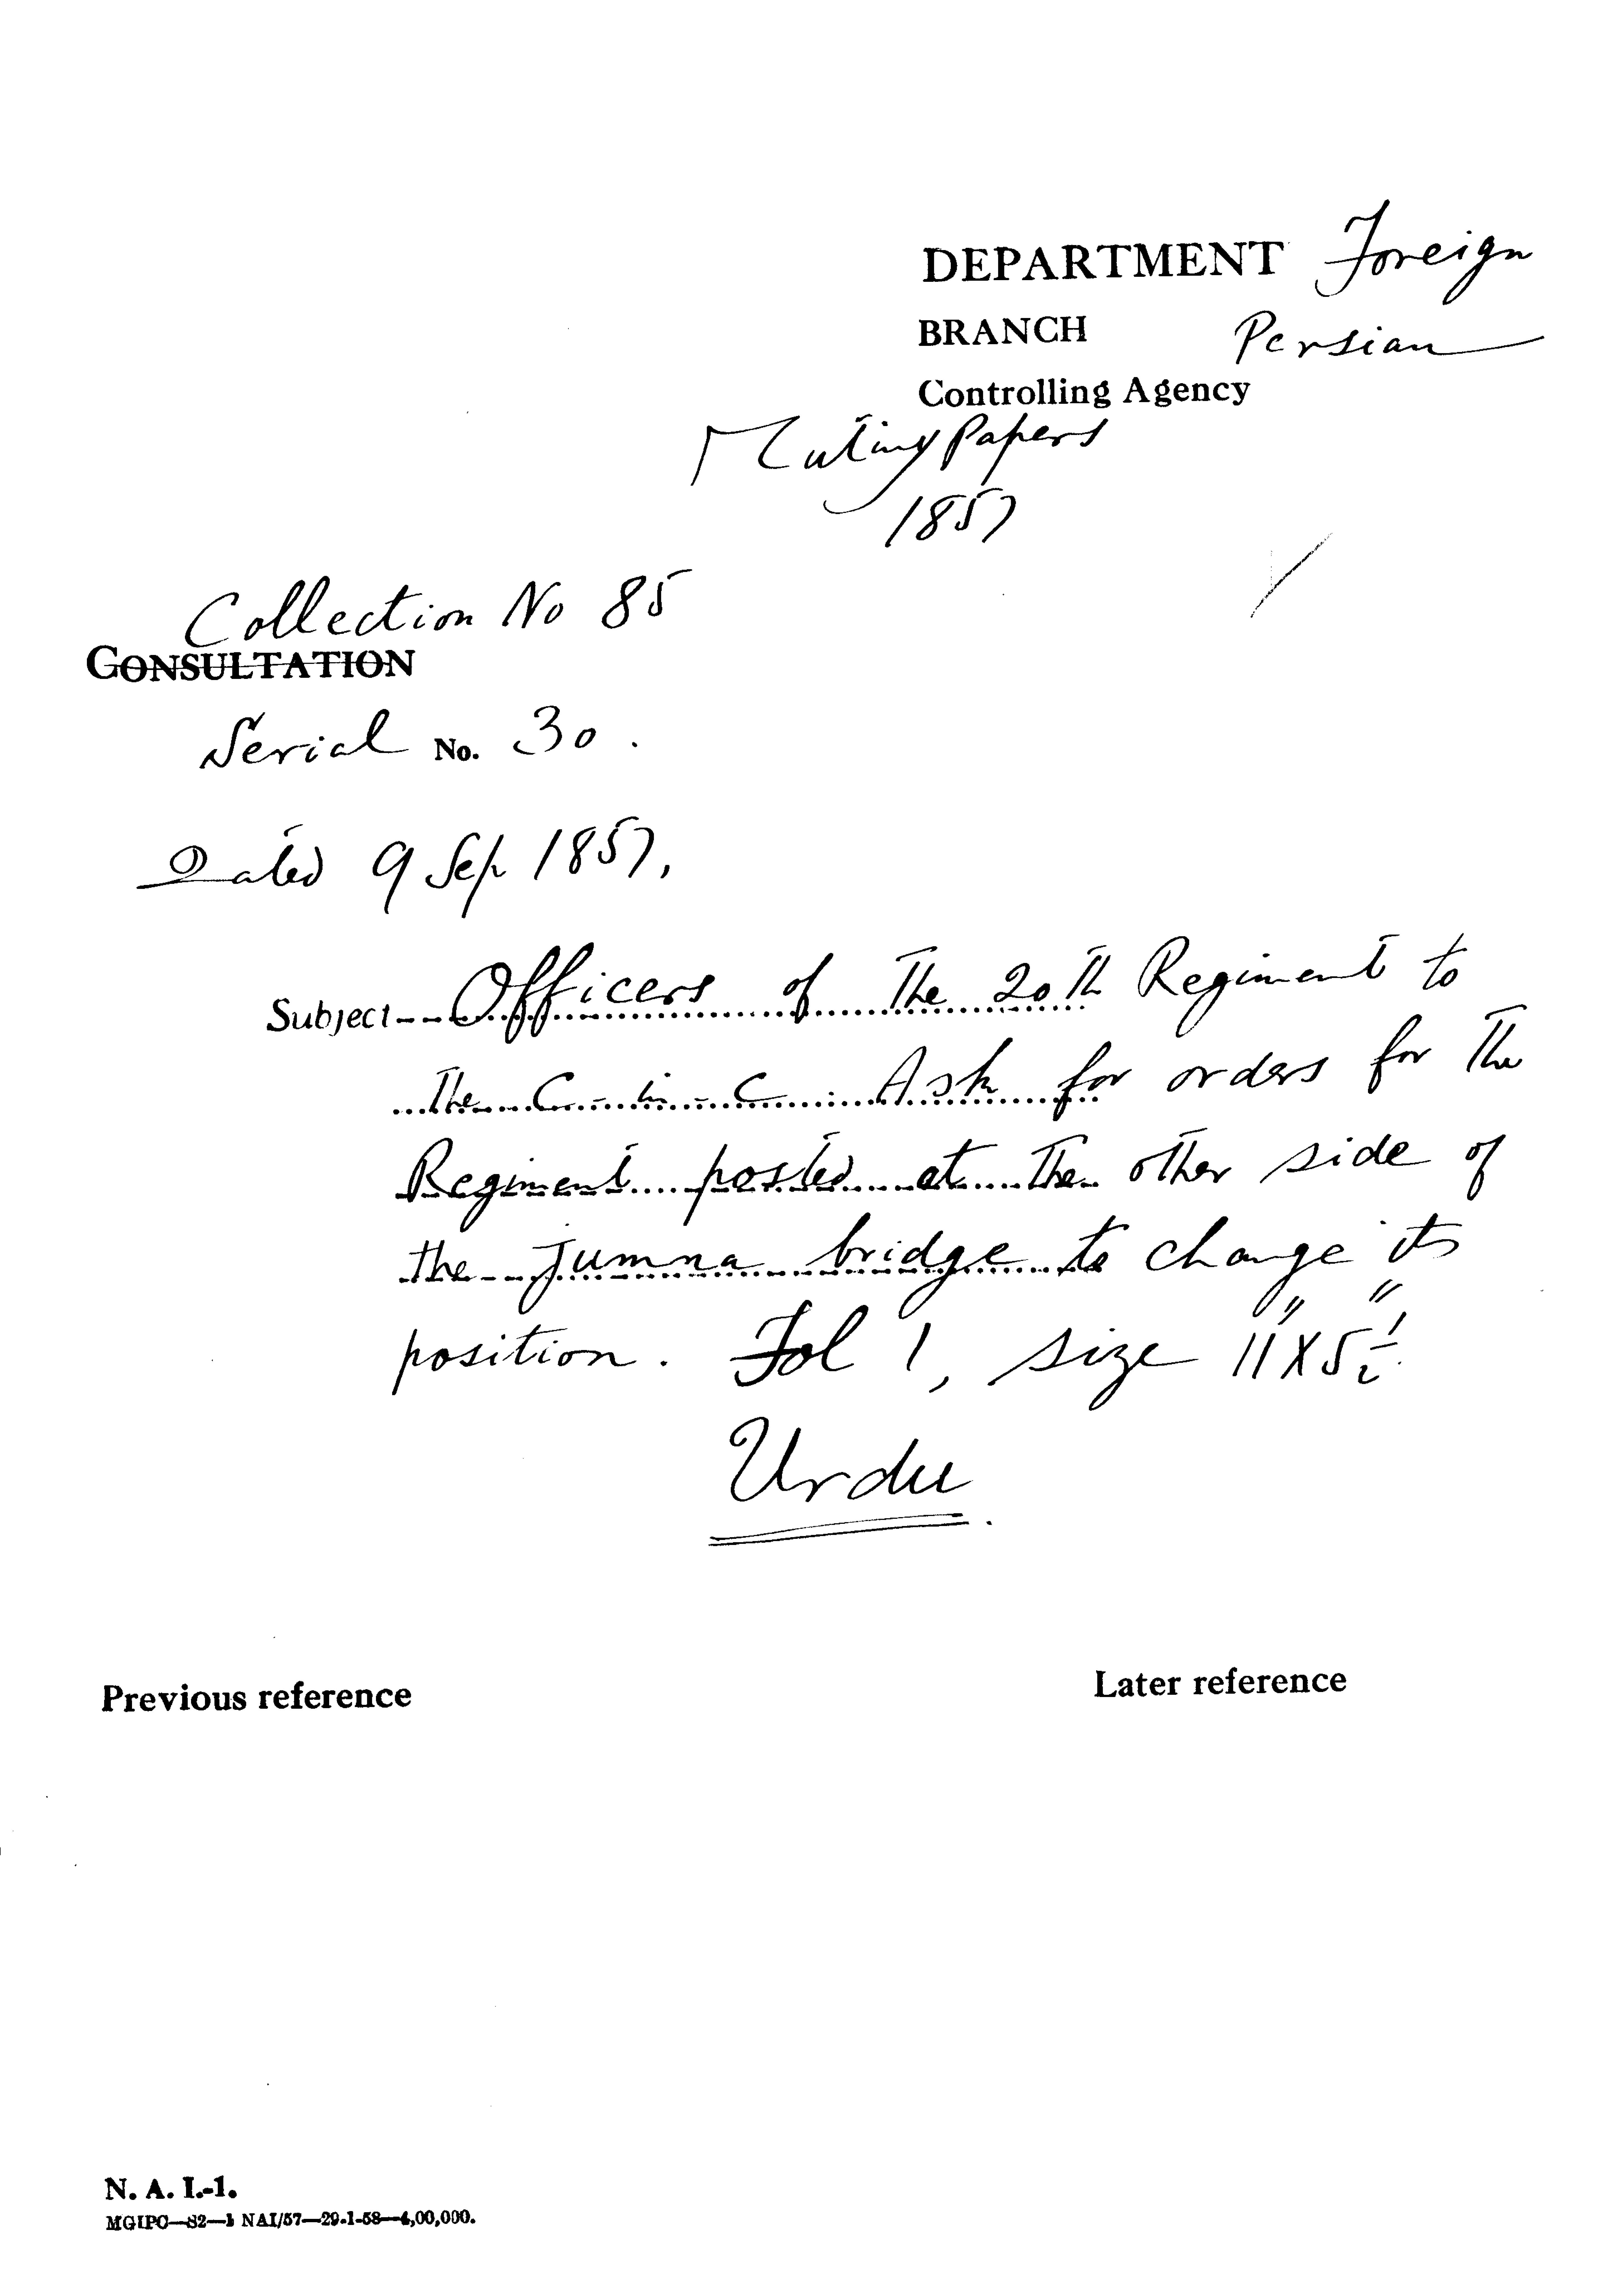 DEPARTMENT Foreign
BRANCH Persian
Controlling Agency
Mutiny Papers
1857
Collection No 85
CONSULTATION
Serial No. 30.
Dated 9 Sep 1857,
Subject-- Officers of the 20th Regiment to
the C-in-C. Ask for orders for the
Regiment posted at the other side of
the Jumna bridge to change its
position. Fol 1, size 11" X 5½"
Urdu
Previous reference Later reference
N. A. I.-1.
MGIPC—S2—1 NAI/57—29-1-58—4,00,000.